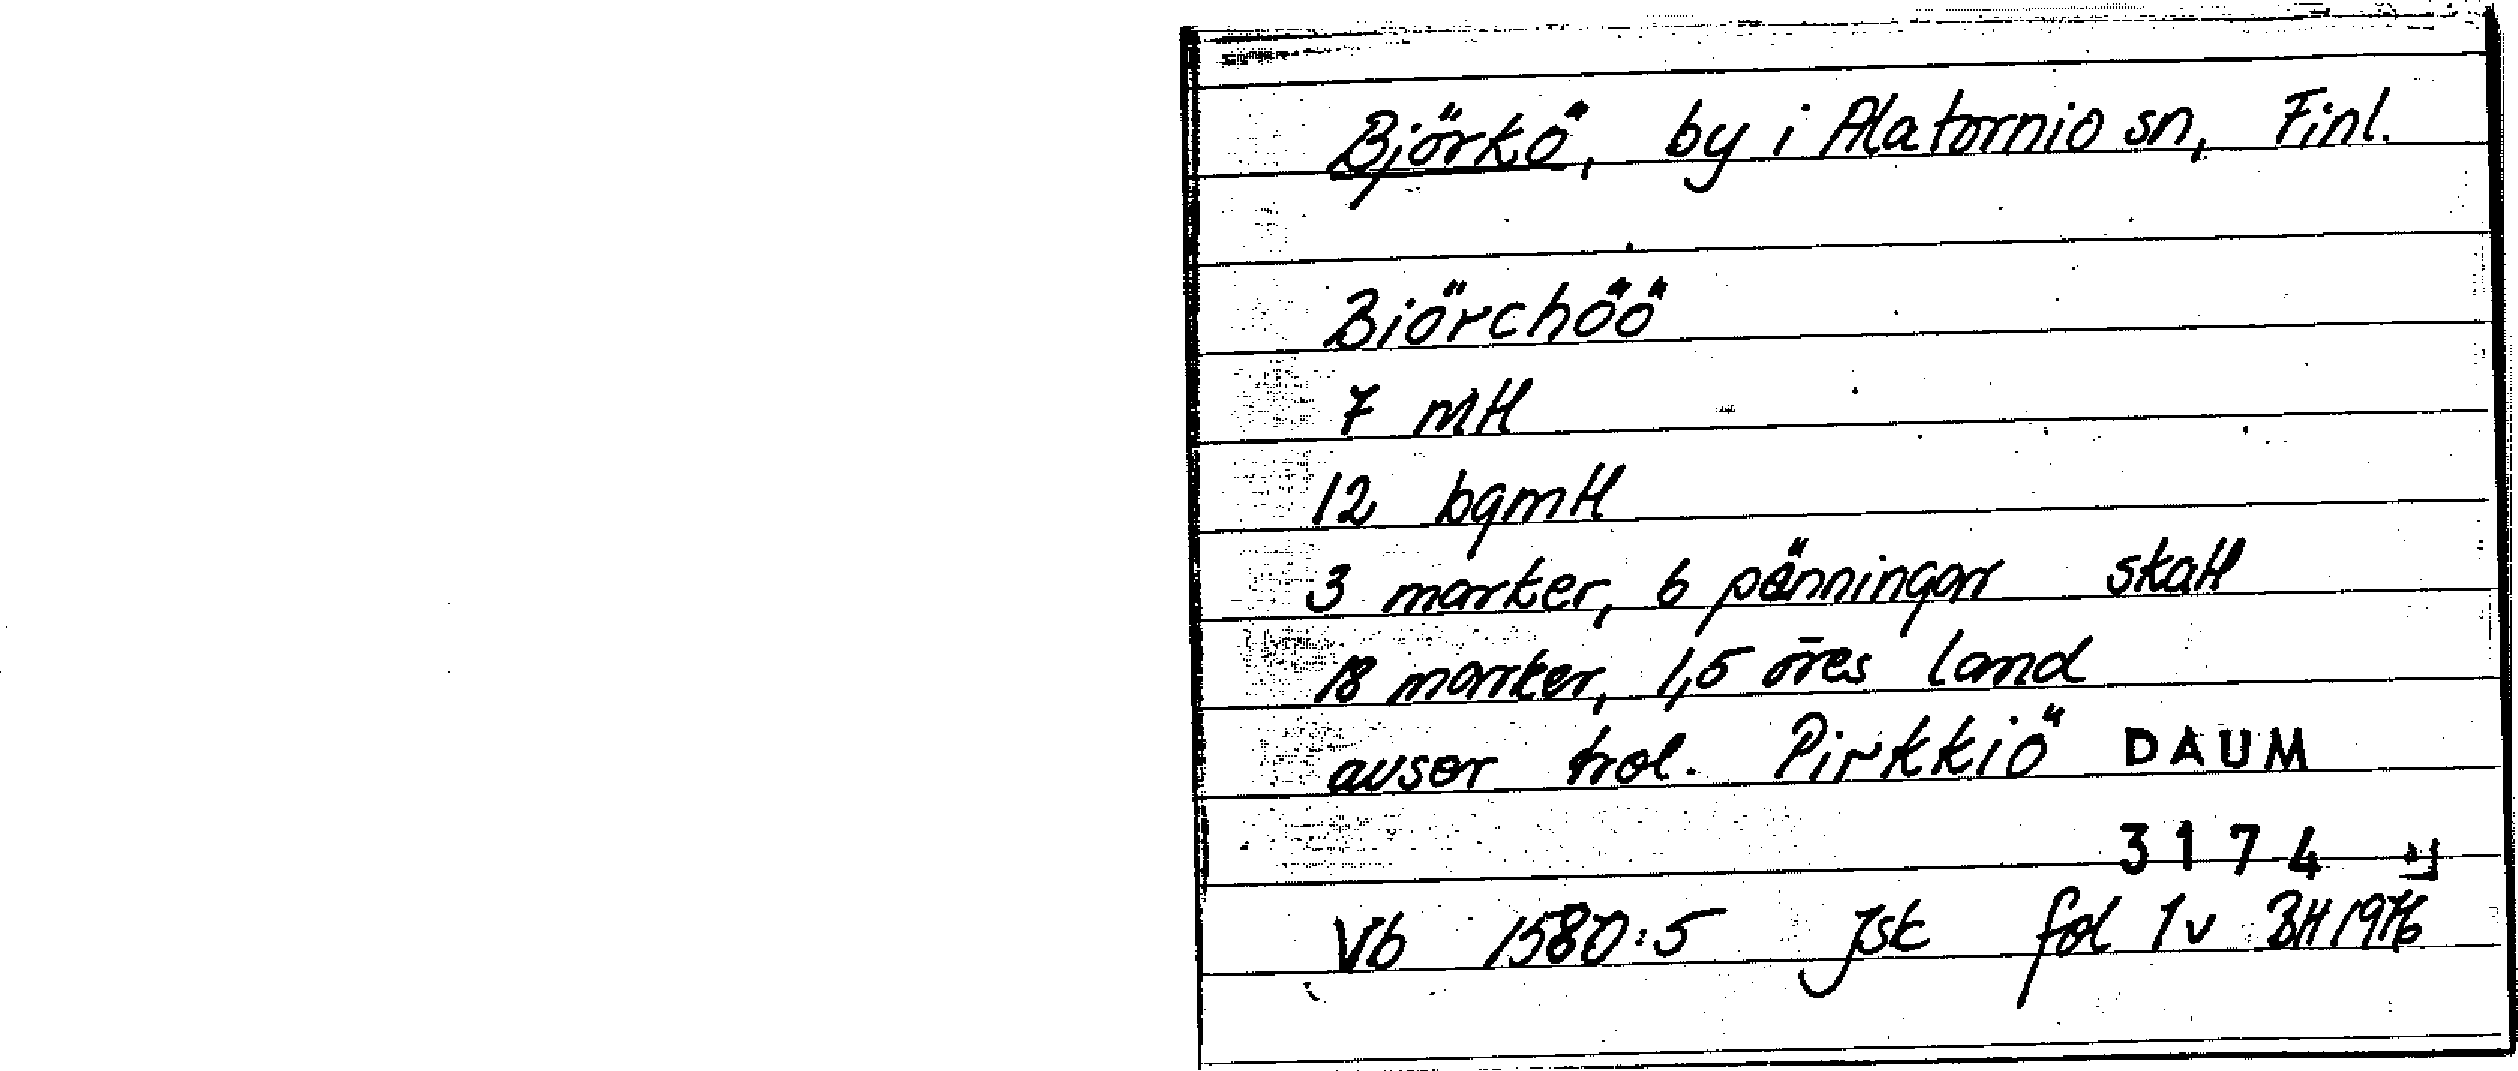 Björkö, by i Alatornio sn, Finl.
Biörchöö
7 mtl
12 bgmtl
3 marker, 6 pänningar skatt
18 marker, 1,5 öres land
avser trol. Pirkkiö DAUM
3174
Vb 1580:5 Jsk fol 1v BH 1976